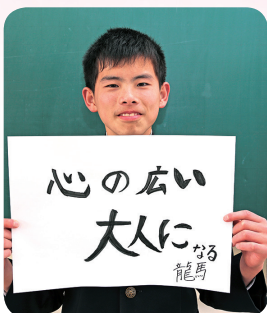 心の広い
大人になる
龍馬